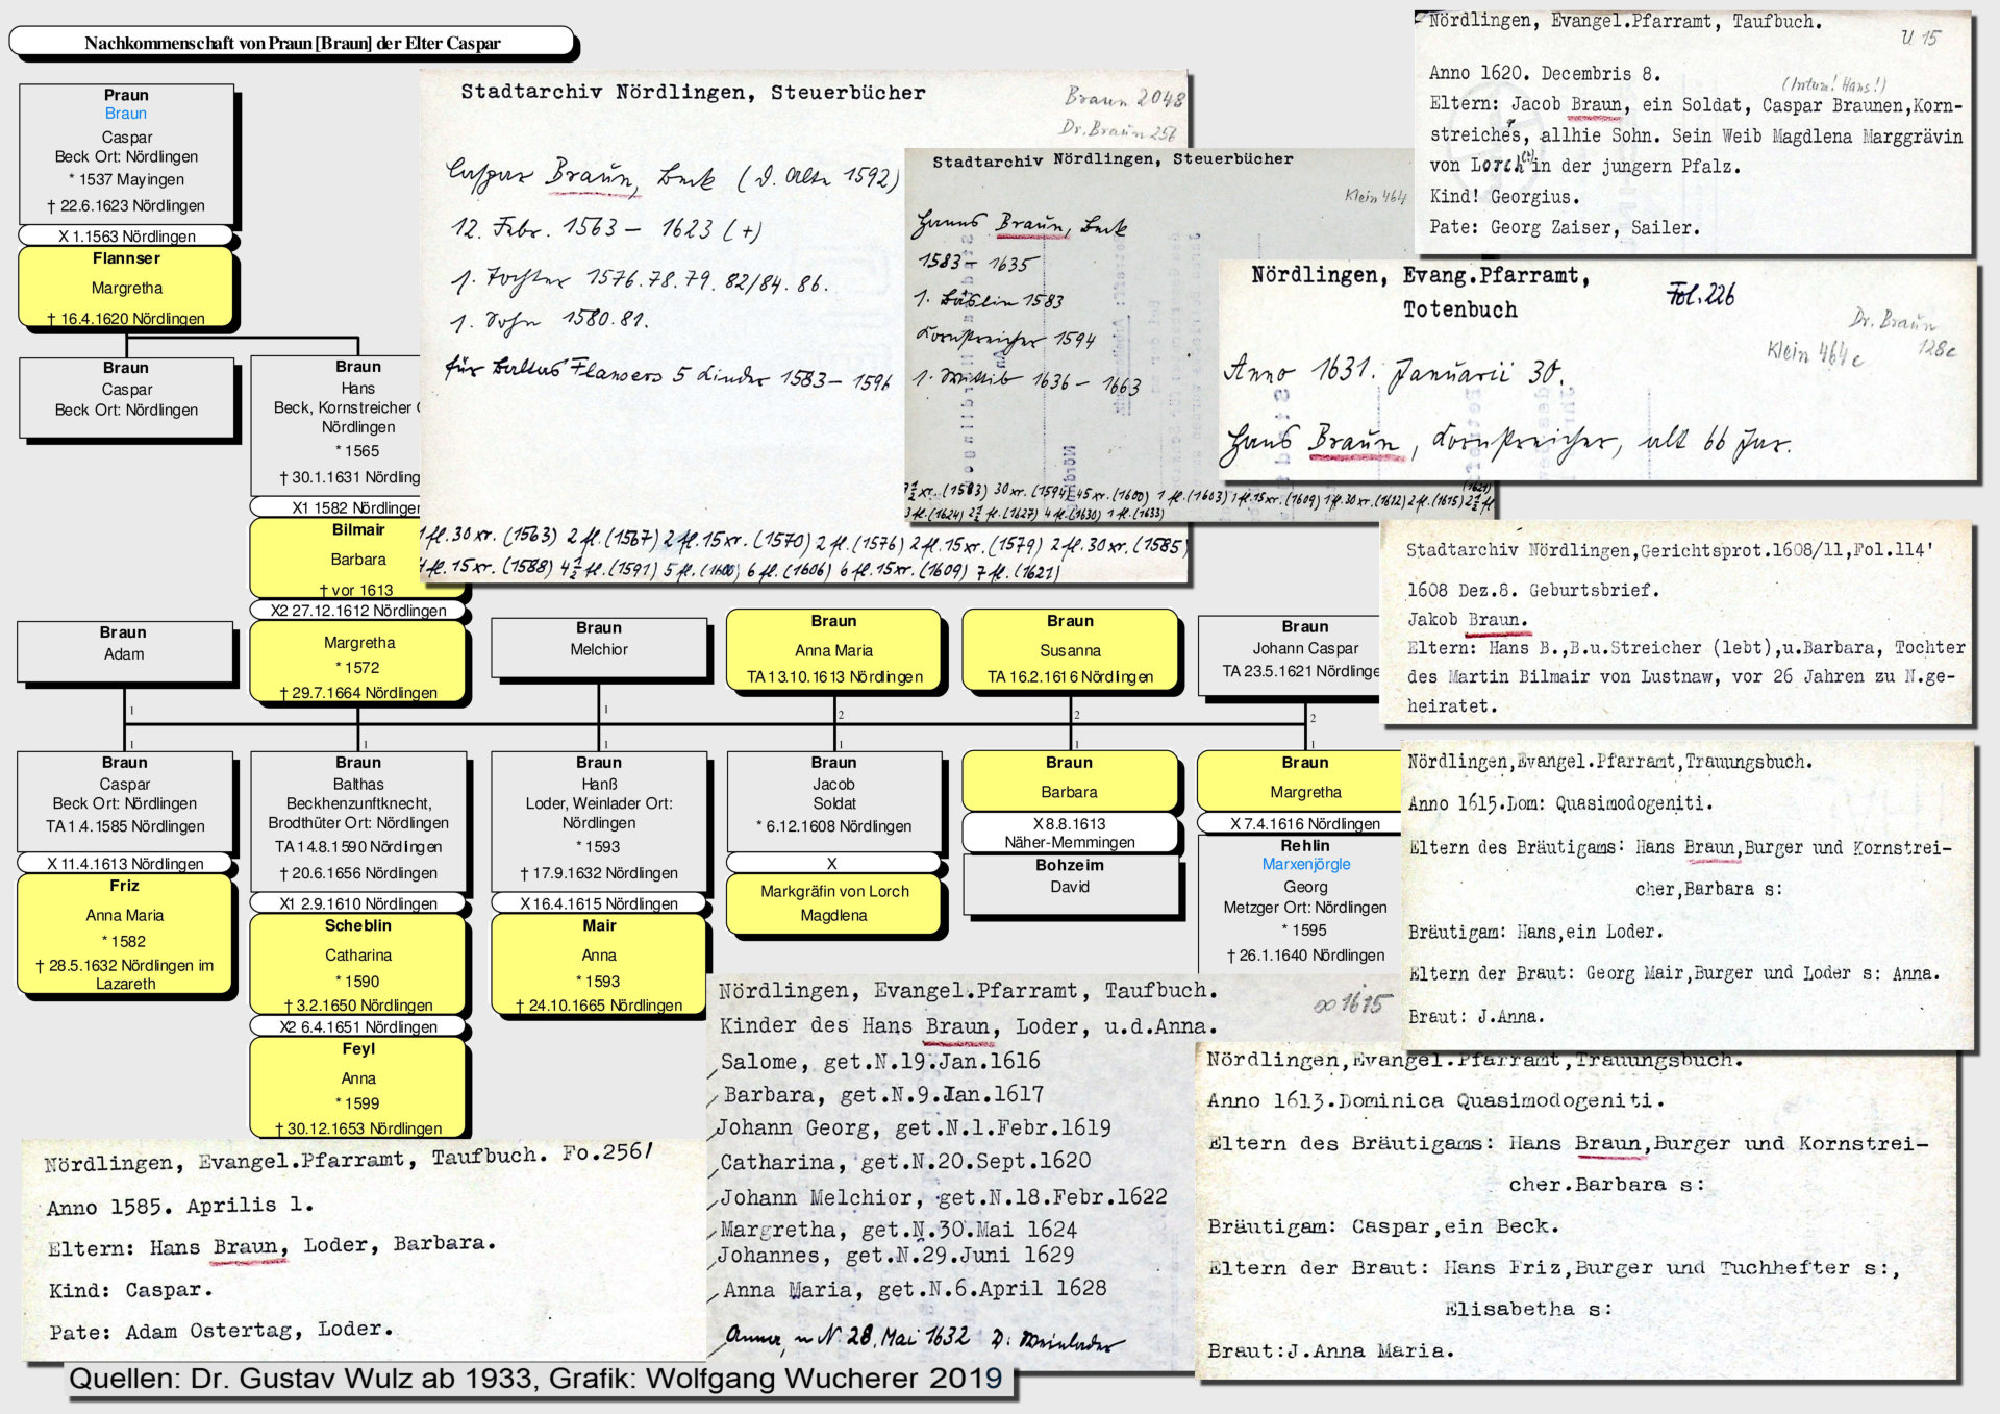 Nachkommenschaft von Praun [Braun] der Elter Caspar
Praun
Braun
Caspar
Beck Ort: Nördlingen
* 1537 Mayingen
† 22.6.1623 Nördlingen
X 1.1563 Nördlingen
Flannser
Margretha
† 16.4.1620 Nördlingen
Braun
Caspar
Beck Ort: Nördlingen
Braun
Hans
Beck, Kornstreicher
Nördlingen
* 1565
† 30.1.1631 Nördling
X1 1582 Nördlingen
Bilmair
Barbara
† vor 1613
X2 27.12.1612 Nördlingen
Margretha
* 1572
† 29.7.1664 Nördlingen
Braun
Adam
Braun
Melchior
Braun
Anna Maria
TA 13.10.1613 Nördlingen
Braun
Susanna
TA 16.2.1616 Nördlingen
Braun
Johann Caspar
TA 23.5.1621 Nördlinge
1
1
2
2
2
1
1
1
1
1
1
Braun
Caspar
Beck Ort: Nördlingen
TA 1.4.1585 Nördlingen
X 11.4.1613 Nördlingen
Friz
Anna Maria
* 1582
† 28.5.1632 Nördlingen im
Lazareth
Braun
Balthas
Beckhenzunftknecht,
Brodthüter Ort: Nördlingen
TA 14.8.1590 Nördlingen
† 20.6.1656 Nördlingen
X1 2.9.1610 Nördlingen
Scheblin
Catharina
* 1590
† 3.2.1650 Nördlingen
X2 6.4.1651 Nördlingen
Feyl
Anna
* 1599
† 30.12.1653 Nördlingen
Braun
Hanß
Loder, Weinlader Ort:
Nördlingen
* 1593
† 17.9.1632 Nördlingen
X 16.4.1615 Nördlingen
Mair
Anna
* 1593
† 24.10.1665 Nördlingen
Braun
Jacob
Soldat
* 6.12.1608 Nördlingen
X
Markgräfin von Lorch
Magdlena
Braun
Barbara
X 8.8.1613
Näher-Memmingen
Bohzeim
David
Braun
Margretha
X 7.4.1616 Nördlingen
Rehlin
Marxenjörgle
Georg
Metzger Ort: Nördlingen
* 1595
† 26.1.1640 Nördlingen
Stadtarchiv Nördlingen, Steuerbücher
Braun 2048
Dr. Braun 256
Caspar Braun, Beck (d. Alte 1592)
12. Febr. 1563 – 1623 (+)
1. Tochter 1576.78.79.82/84.86.
1. Sohn 1580.81.
für Baltus Flansers 5 Kinder 1583 – 1596
1 fl. 30 xr. (1563) 2 fl. (1567) 2 fl. 15 xr. (1570) 2 fl. (1576) 2 fl. 15 xr. (1579) 2 fl. 30 xr. (1585)
4 fl. 15 xr. (1588) 4½ fl. (1591) 5 fl. (1600) 6 fl. (1606) 6 fl. 15 xr. (1609) 7 fl. (1621)
Stadtarchiv Nördlingen, Steuerbücher
Klein 464
Hanns Braun, Beck
1583 – 1635
1. Däslin 1583
Kornstreicher 1594
1. Wittib 1636 – 1663
xr. (1583) 30 xr. (1594) 45 xr. (1600) 1 fl. (1603) 1 fl. 15 xr. (1609) 1 fl. 30 xr. (1612) 2 fl. (1615) 2½ fl (1621)
3 fl. (1624) 2½ fl. (1627) 4 fl. (1630) 1 fl. (1633)
Nördlingen, Evangel.Pfarramt, Taufbuch.
U 15
Anno 1620. Decembris 8.
(Irrtum! Hans!)
Eltern: Jacob Braun, ein Soldat, Caspar Braunen,Korn-
streichers, allhie Sohn. Sein Weib Magdlena Marggrävin
von Lorch in der jungern Pfalz.
Kind! Georgius.
Pate: Georg Zaiser, Sailer.
Nördlingen, Evang.Pfarramt,
Totenbuch
Fol. 226
Dr. Braun
128c
Klein 464c
Anno 1631. Januarii 30.
Hans Braun, Kornstreicher, alt 66 Jar.
Stadtarchiv Nördlingen,Gerichtsprot.1608/11,Fol.114'
1608 Dez.8. Geburtsbrief.
Jakob Braun.
Eltern: Hans B.,B.u.Streicher (lebt),u.Barbara, Tochter
des Martin Bilmair von Lustnaw, vor 26 Jahren zu N.ge-
heiratet.
Nördlingen,Evangel.Pfarramt,Trauungsbuch.
Anno 1615.Dom: Quasimodogeniti.
Eltern des Bräutigams: Hans Braun,Burger und Kornstrei-
cher,Barbara s:
Bräutigam: Hans,ein Loder.
Eltern der Braut: Georg Mair,Burger und Loder s: Anna.
Braut: J.Anna.
Nördlingen,Evangel.Pfarramt,Trauungsbuch.
Anno 1613.Dominica Quasimodogeniti.
Eltern des Bräutigams: Hans Braun,Burger und Kornstrei-
cher.Barbara s:
Bräutigam: Caspar,ein Beck.
Eltern der Braut: Hans Friz,Burger und Tuchhefter s:,
Elisabetha s:
Braut:J.Anna Maria.
Nördlingen, Evangel.Pfarramt, Taufbuch.
∞ 1615
Kinder des Hans Braun, Loder, u.d.Anna.
Salome, get.N.19.Jan.1616
Barbara, get.N.9.Jan.1617
Johann Georg, get.N.1.Febr.1619
Catharina, get.N.20.Sept.1620
Johann Melchior, get.N.18.Febr.1622
Margretha, get.N.30.Mai 1624
Johannes, get.N.29.Juni 1629
Anna Maria, get.N.6.April 1628
Anna, N. 28. Mai 1632 D. Weinlader
Nördlingen, Evangel.Pfarramt, Taufbuch. Fo.256/
Anno 1585. Aprilis 1.
Eltern: Hans Braun, Loder, Barbara.
Kind: Caspar.
Pate: Adam Ostertag, Loder.
Quellen: Dr. Gustav Wulz ab 1933, Grafik: Wolfgang Wucherer 2019